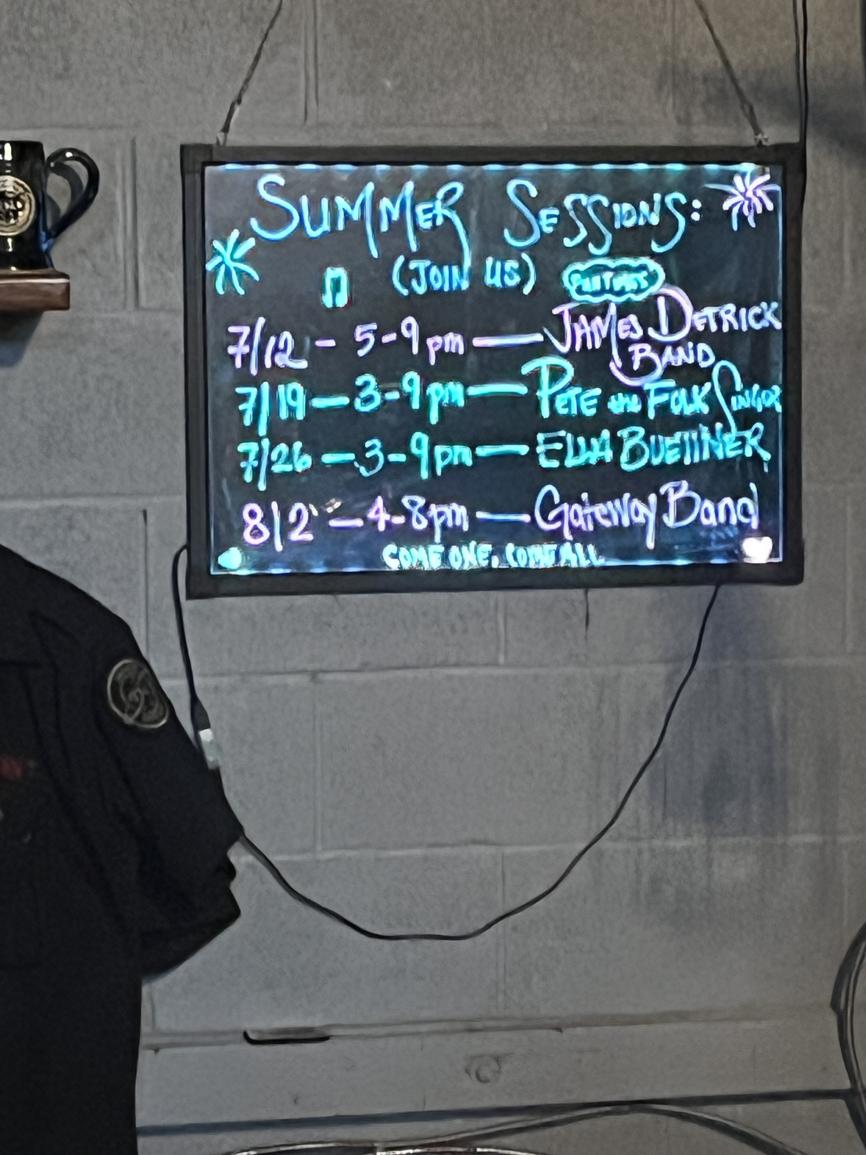 SUMMER SESSIONS:
(JOIN US)
7/12 - 5-9pm — JAMES DETRICK
BAND
7/19 — 3-9pm — PETE the FOLK SINGER
7/26 — 3-9pm — ELLA BUETTNER
8/2 — 4-8pm — Gateway Band
COME ONE, COME ALL